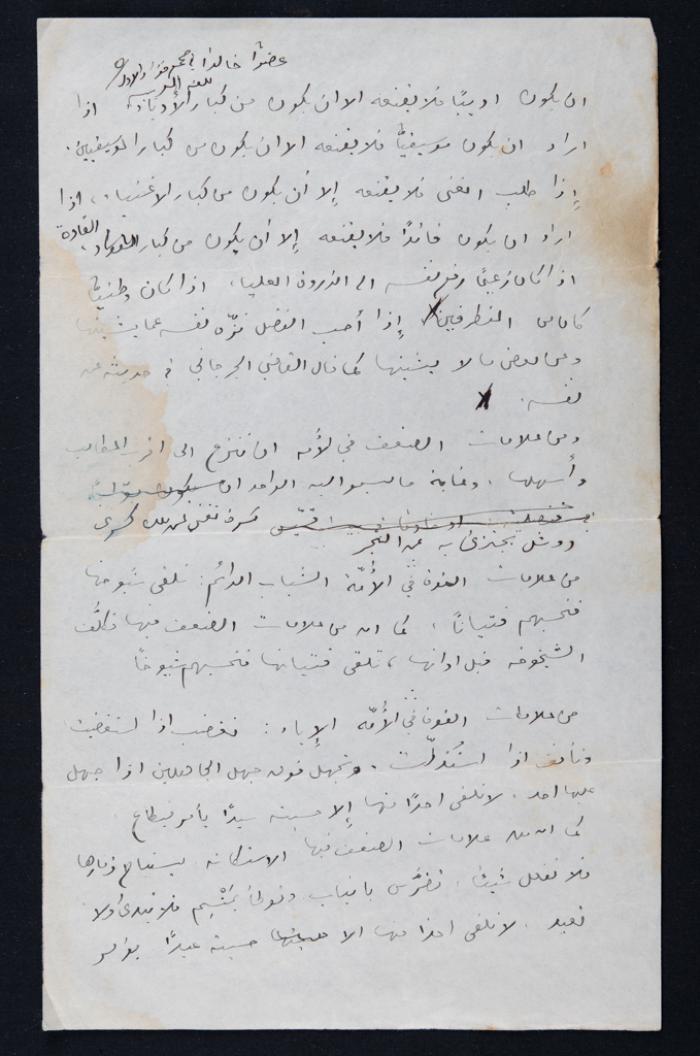 عضوًا خالدًا في مجمع فؤاد الاول
للغة العربية
ان يكون اديبًا فلا يقنعه الا ان يكون من كبار الأدباء، اذا
اراد ان يكون موسيقيًّا فلا يقنعه الا ان يكون من كبار الموسيقيين.
إذا طلب الغنى فلا يقنعه إلا أن يكون من كبار الاغنياء، اذا
اراد ان يكون قائدًا فلا يقنعه إلا أن يكون من كبار القادة
اذا كان زعيمًا رفع نفسه الى الذروة العليا، اذا كان وطنيًّا
كان من المتطرفين، إذا أحب الفضل نزّه نفسه عما يشينها
وعن بعض ما لا يشينها كما قال القاضي الجرجاني في حديثه عن
نفسه.
ومن علامات الضعف في الأمة ان تنزع الى اقرب المطالب
وأسهلها، وغاية ما يسمو اليه الواحد ان
كسرة تغني عن كسرى
ووشل يجتزئ به عن البحر
من علامات القوة في الأمّة الشباب الدائم: تلقى شيوخها
فتحسبهم فتيانًا، كما ان من علامات الضعف فيها تكلّف
الشيخوخة قبل اوانها، تلقى فتيانها فتحسبهم شيوخًا
من علامات القوة في الأمّة الإباء: تغضب اذا استغضبت
وتأنف اذا استُذلّت. وتجهل فوق جهل الجاهلين اذا جهل
عليها احد. لا تلقى احدًا منها إلا حسبته سيدًا يأمر فيطاع
كما ان من علامات الضعف فيها الاستكانة. يستباح ذمارها
فلا تفعل شيئًا، تضرَّس بانياب وتوطأ بمَنْسِم فلا تبدئ ولا
تعيد. لا تلقى احدًا منها الا حسبته عبدًا يؤمر